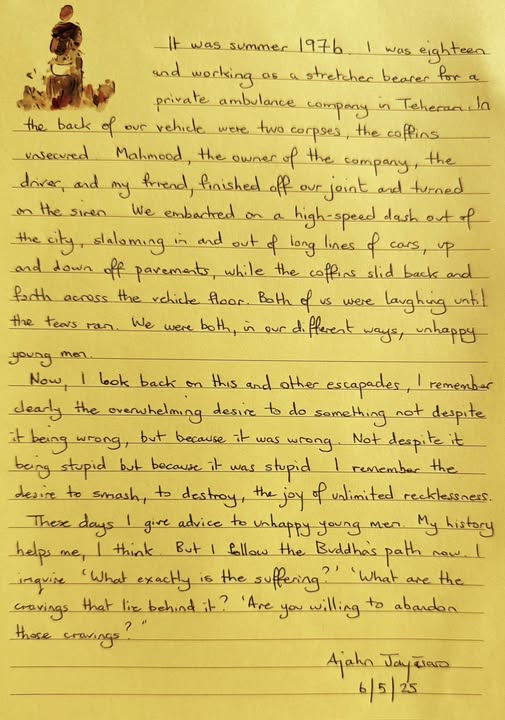 It was summer 1976. I was eighteen
and working as a stretcher bearer for a
private ambulance company in Teheran. In
the back of our vehicle were two corpses, the coffins
unsecured Mahmood, the owner of the company, the
driver, and my friend, finished off our joint and turned
on the siren We embarked on a high-speed dash out of
the city, slaloming in and out of long lines of cars, up
and down off pavements, while the coffins slid back and
forth across the vehicle floor. Both of us were laughing until
the tears ran. We were both, in our different ways, unhappy
young men.
Now, I look back on this and other escapades, I remember
clearly the overwhelming desire to do something not despite
it being wrong, but because it was wrong. Not despite it
being stupid but because it was stupid I remember the
desire to smash, to destroy, the joy of unlimited recklessness.
These days I give advice to unhappy young men. My history
helps me, I think. But I follow the Buddha's path now. I
inquire 'What exactly is the suffering?' 'What are the
cravings that lie behind it? 'Are you willing to abandon
those cravings?"
Ajahn Jayasaro
6/5/25